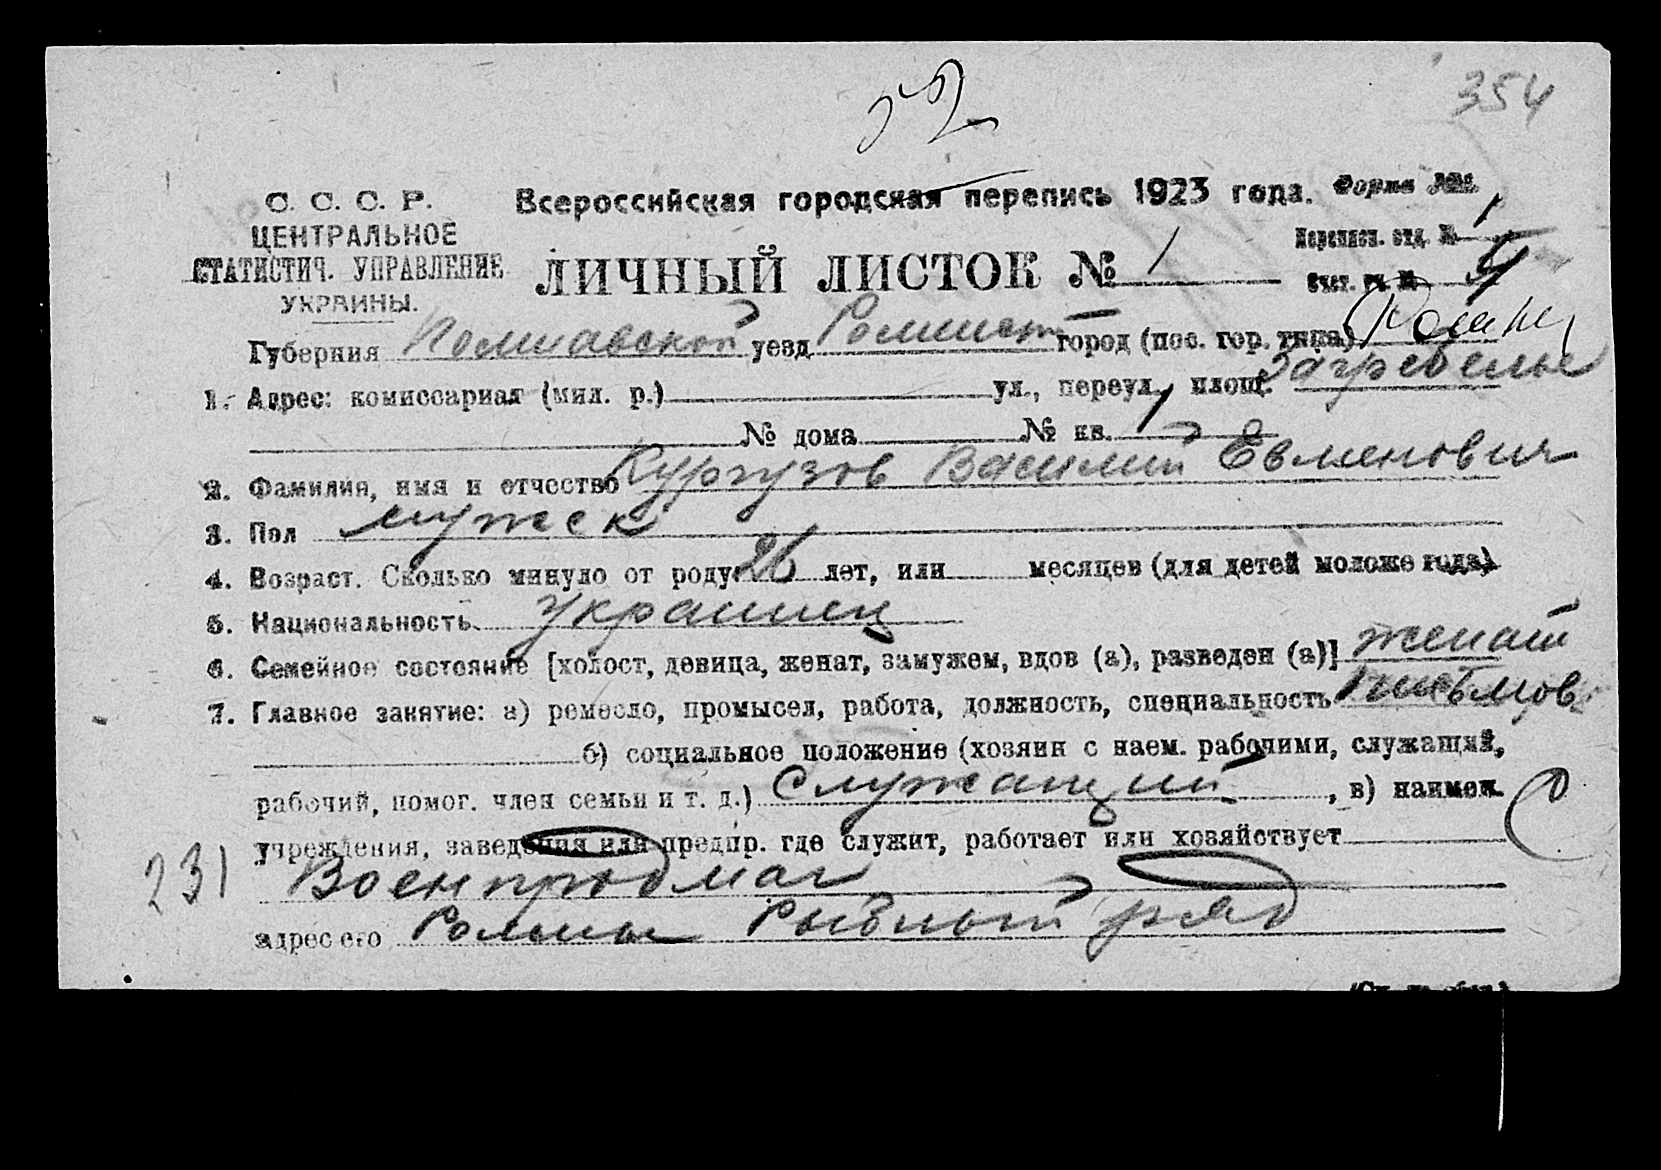 354
С. С. С. Р.
ЦЕНТРАЛЬНОЕ
СТАТИСТИЧ. УПРАВЛЕНИЕ
УКРАИНЫ.
Всероссийская городская перепись 1923 года.
Форма №
Переписн. отд. № 1
ЛИЧНЫЙ ЛИСТОК № 1
Счет. уч. №
Губерния Полтавской уезд Роменск город (пос. гор. типа) Ромны
1. Адрес: комиссариат (мил. р.) ул., переул., площ. Загребелье
№ дома № кв. 1
2. Фамилия, имя и отчество Кургузов Василий Евменович
3. Пол мужск
4. Возраст. Сколько минуло от роду 26 лет, или месяцев (для детей моложе года)
5. Национальность украинец
6. Семейное состояние [холост, девица, женат, замужем, вдов (а), разведен (а)] женат
7. Главное занятие: а) ремесло, промысел, работа, должность, специальность
б) социальное положение (хозяин с наем. рабочими, служащий,
рабочий, помог. член семьи и т. д.) Служащий, в) наимен.
учреждения, заведения или предпр. где служит, работает или хозяйствует
231 Военпродмаг
адрес его Ромны Рыбный ряд